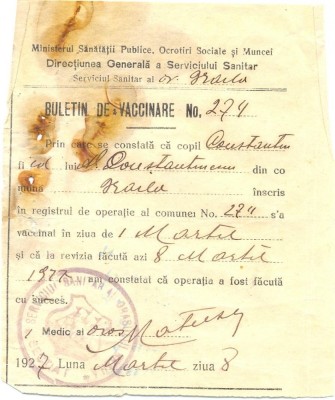 Ministerul Sănătății Publice, Ocrotiri Sociale și Muncei
Direcțiunea Generală a Serviciului Sanitar
Serviciul Sanitar al or. Braila
BULETIN DE VACCINARE No. 274
Prin care se constată că copil Constantin
fi lui Constantinescu din co
muna Braila înscris
în registrul de operație al comunei No. 274 s'a
vaccinat în ziua de 1 Martie
și că la revizia făcută azi 8 Martie
1927 am constatat că operația a fost făcută
cu succes.
Medic al oraș
1927 Luna Martie ziua 8